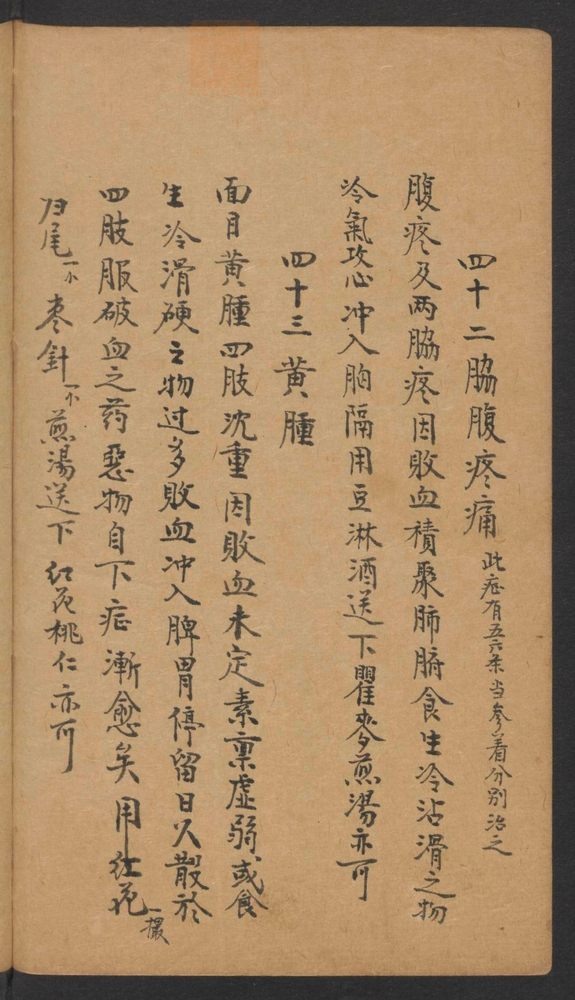 四十二脇腹疼痛 此症有五六条当参着分别治之
腹疼及两脇疼因敗血積聚肺腑食生冷沾滑之物
冷氣攻心冲入胸隔用豆淋酒送下瞿麥煎湯亦可
四十三黄腫
面目黄腫四肢沈重因敗血未定素禀虚弱或食
生冷滑硬之物过多敗血冲入脾胃停留日久散於
四肢服破血之药惡物自下症漸愈矣用红花一撮
归尾一小枣針一小煎湯送下红花桃仁亦可